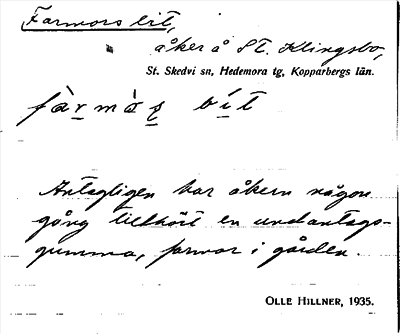 Farmors bit,
åker å St. Klingsbo,
St. Skedvi sn, Hedemora tg, Kopparbergs län.
fàrmàṣ bít
Antagligen har åkern någon
gång tillhört en undantags-
gumma, farmor i gården.
OLLE HILLNER, 1935.